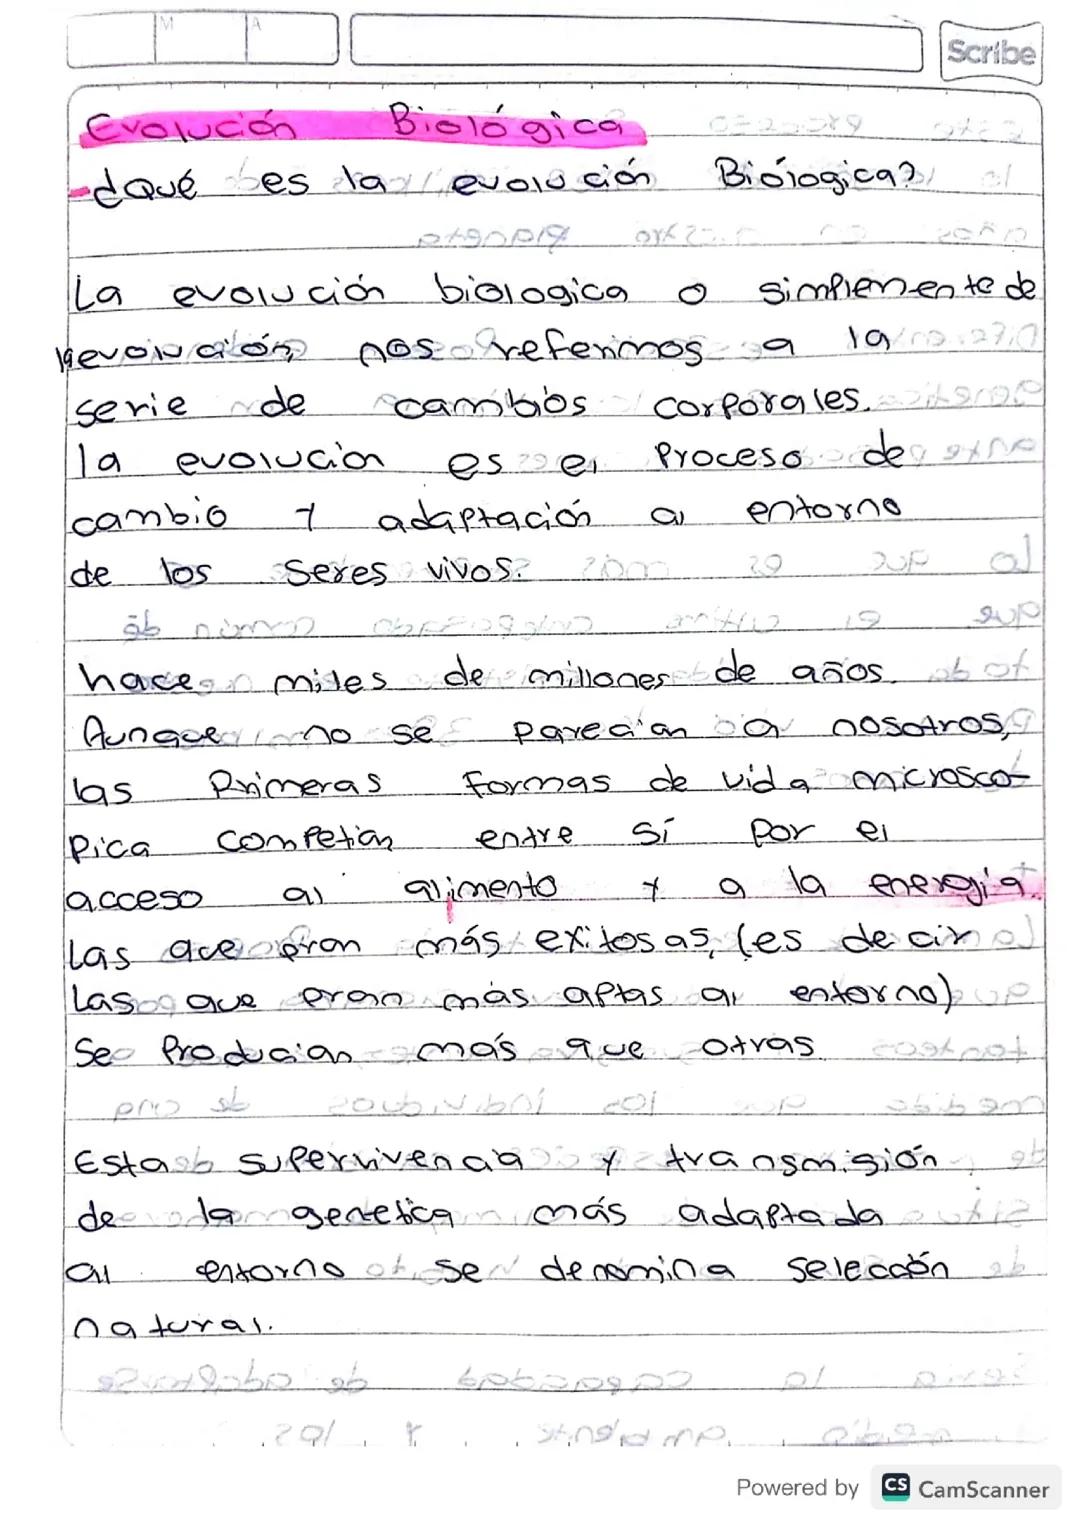 M A
Scribe
Evolución Biológica
-¿Qué es la evolución Biólogica?
La evolución biologica o simplemente de
la evolución, nos referimos a la
serie de cambios corporales.
la evolución es el Proceso de
cambio y adaptación al entorno
de los seres vivos.
hace miles de millones de años.
Aunque no se parecian a nosotros,
las Primeras formas de vida microsco-
Pica competían entre sí por el
acceso al alimento y a la energía.
Las que eran más exitosas, (es decir
Las que eran más aptas al entorno)
Se Producían más que otras
Esta supervivencia y transmisión
de la genetica más adaptada
al entorno se denomina selección
natural.
Powered by CS CamScanner